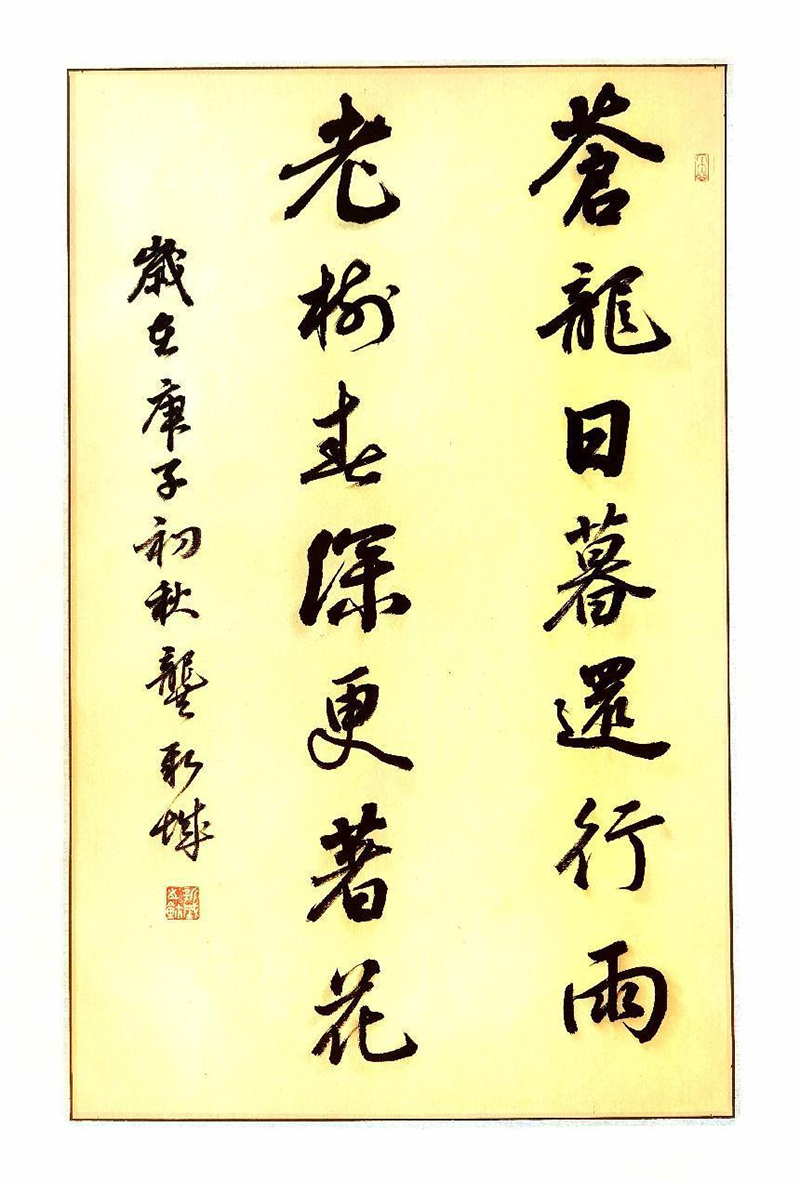 蒼龍日暮還行雨
老樹春深更著花
歲在庚子初秋龔新城